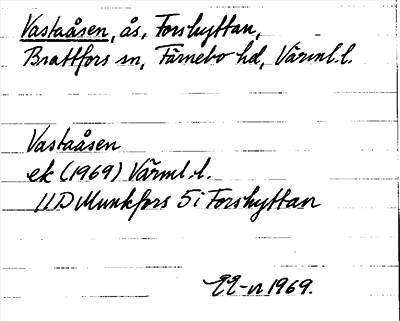 Vastaåsen, ås, Forshyttan,
Brattfors sn, Färnebo hd, Värml. l.
Vastaåsen
ek (1969) Värml. l.
11D Munkfors 5 i Forshyttan
1969.